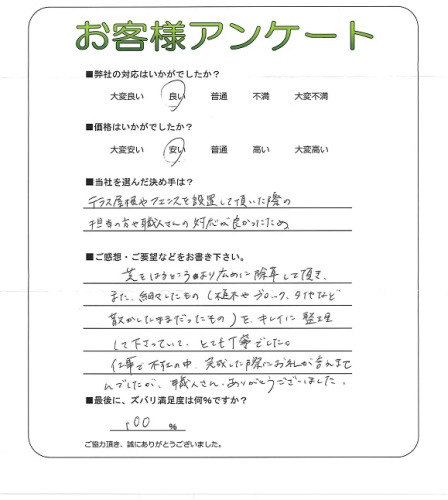 お客様アンケート
■弊社の対応はいかがでしたか？
大変良い 良い 普通 不満 大変不満
■価格はいかがでしたか？
大変安い 安い 普通 高い 大変高い
■当社を選んだ決め手は？
テラス屋根やフェンスを設置して頂いた際の
担当の方や職人さんの対応が良かったため
■ご感想・ご要望などをお書き下さい。
芝をはるところより広めに除草して頂き、
また、細々したもの（植木やブロック、タイヤなど
散らかしたままだったもの）を、キレイに整理
して下さっていて、とても丁寧でした。
仕事で不在の中、完成した際にお礼が言えませ
んでしたが、職人さん、ありがとうございました。
■最後に、ズバリ満足度は何％ですか？
100 ％
ご協力頂き、誠にありがとうございました。